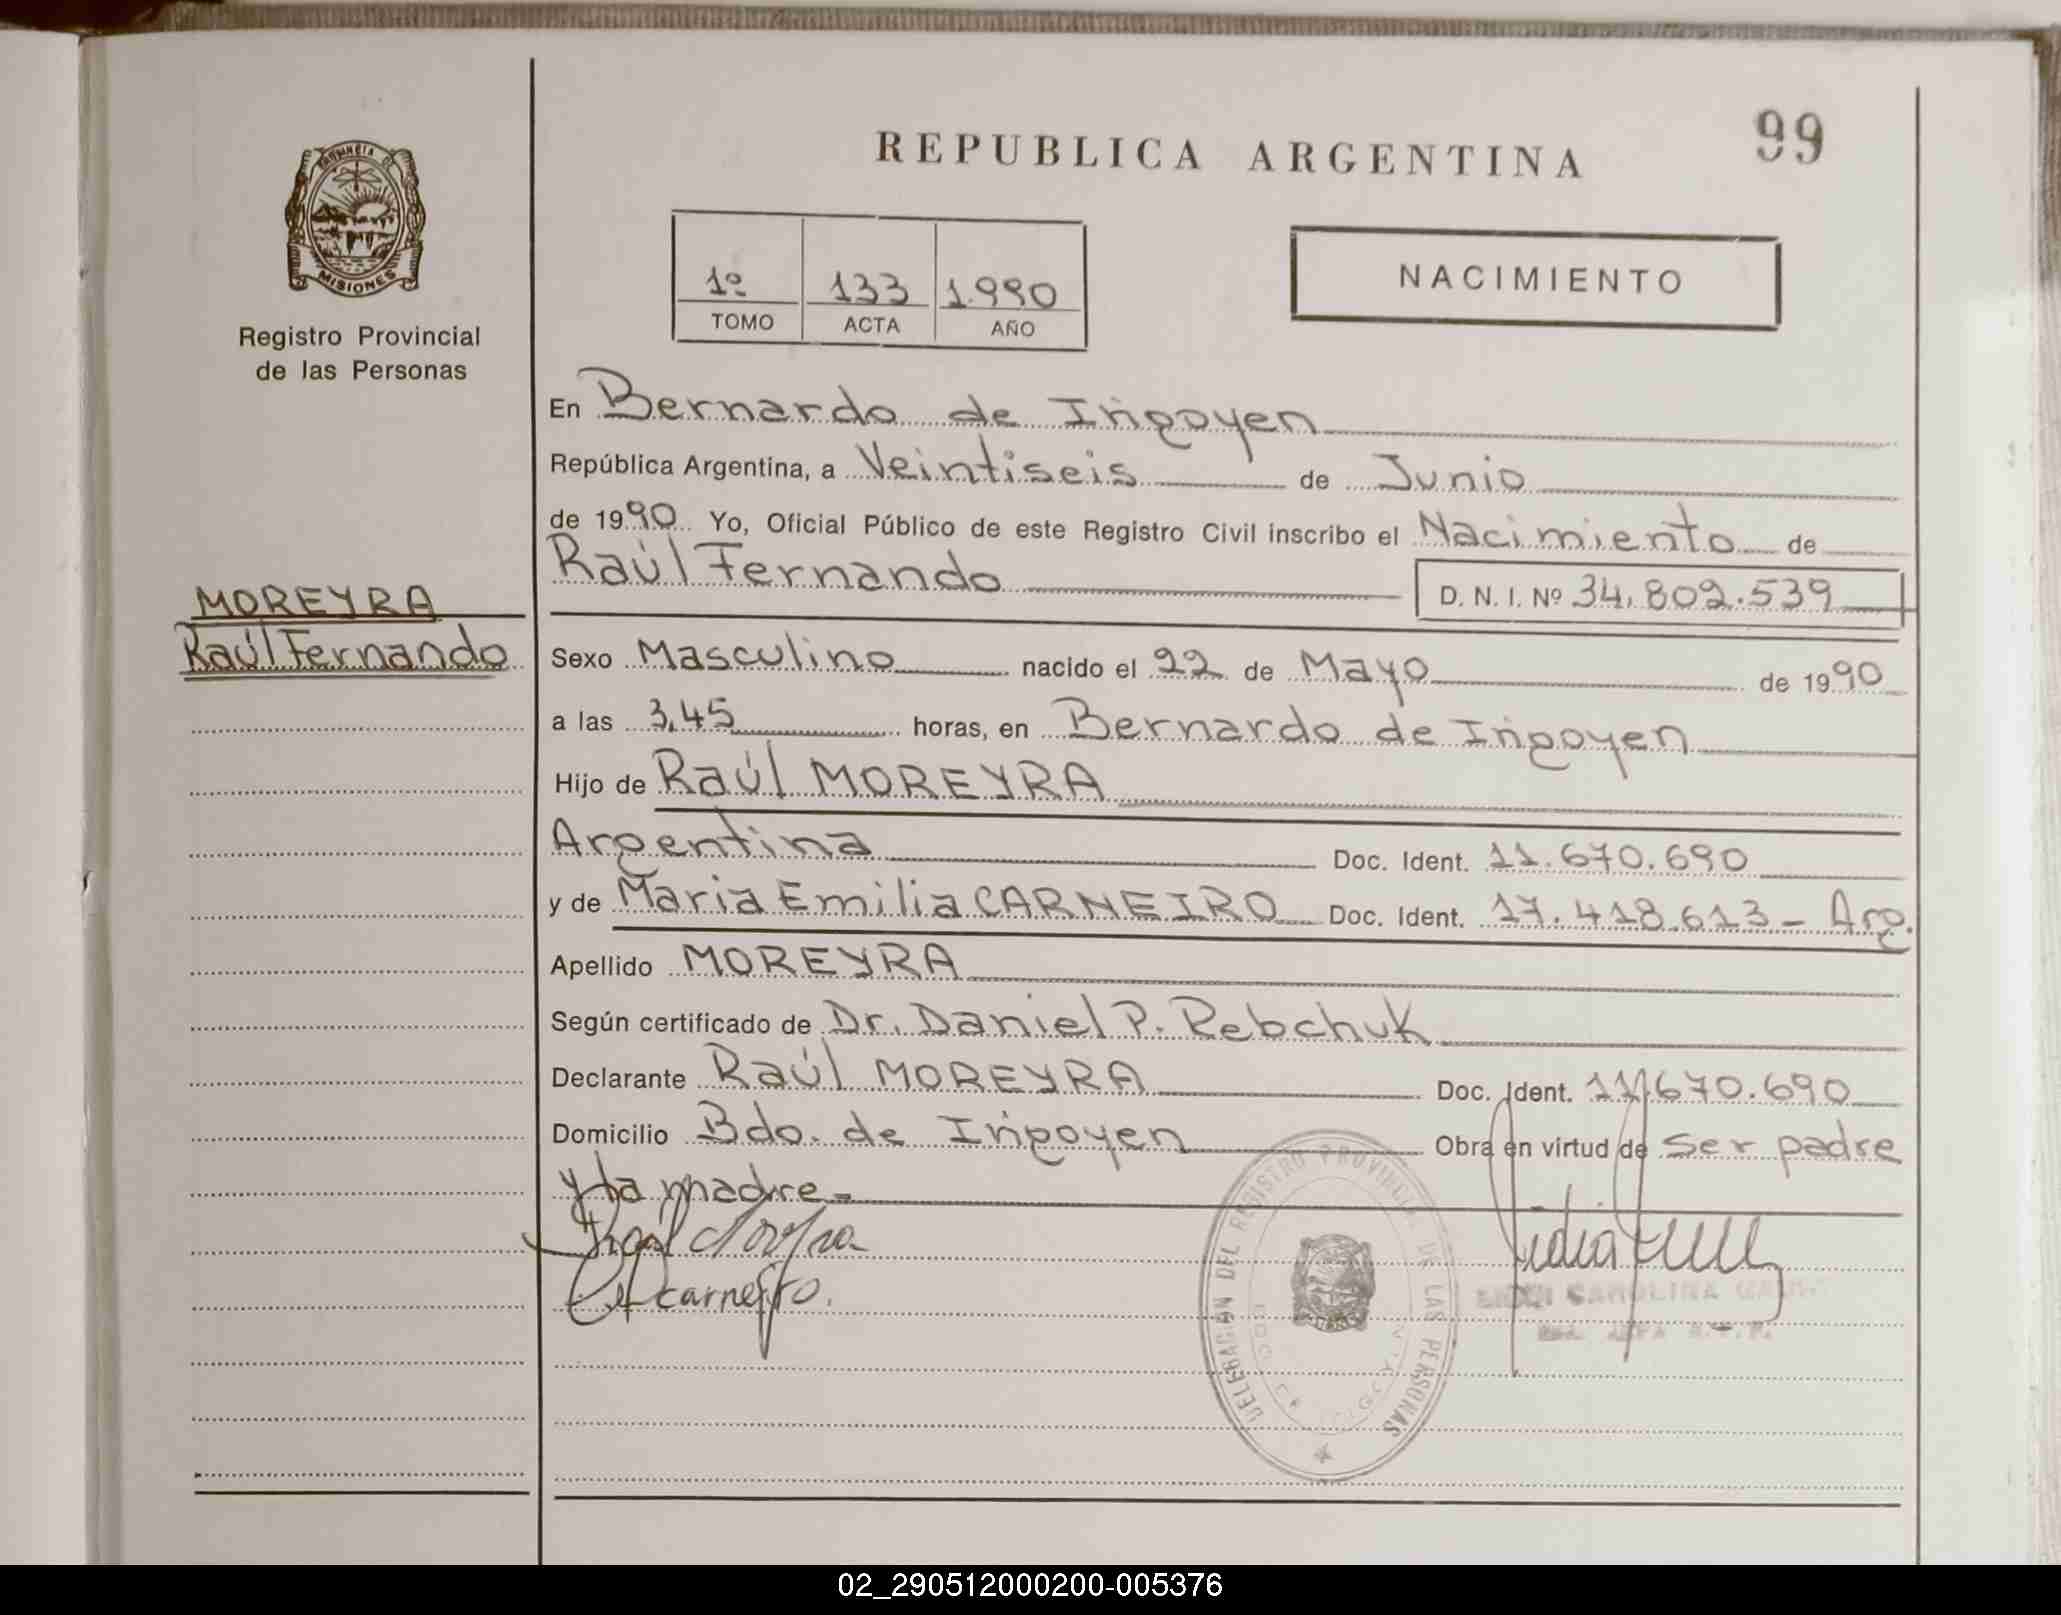 REPUBLICA ARGENTINA
99
PROVINCIA DE
MISIONES
Registro Provincial
de las Personas
1º 133 1.990
TOMO ACTA AÑO
NACIMIENTO
En Bernardo de Irigoyen
República Argentina, a Veintiseis de Junio
de 1990 Yo, Oficial Público de este Registro Civil inscribo el Nacimiento de
Raúl Fernando D. N. I. Nº 34.802.539
MOREYRA
Raúl Fernando
Sexo Masculino nacido el 22 de Mayo de 1990
a las 3,45 horas, en Bernardo de Irigoyen
Hijo de Raúl MOREYRA
Argentina Doc. Ident. 11.670.690
y de Maria Emilia CARNEIRO Doc. Ident. 17.418.613 - Arg.
Apellido MOREYRA
Según certificado de Dr. Daniel P. Rebchuk
Declarante Raúl MOREYRA Doc. Ident. 11.670.690
Domicilio Bdo. de Irigoyen Obra en virtud de ser padre
y la madre.-
DELEGACION DEL REGISTRO PROVINCIAL DE LAS PERSONAS
carneiro.
CAROLINA
02_290512000200-005376